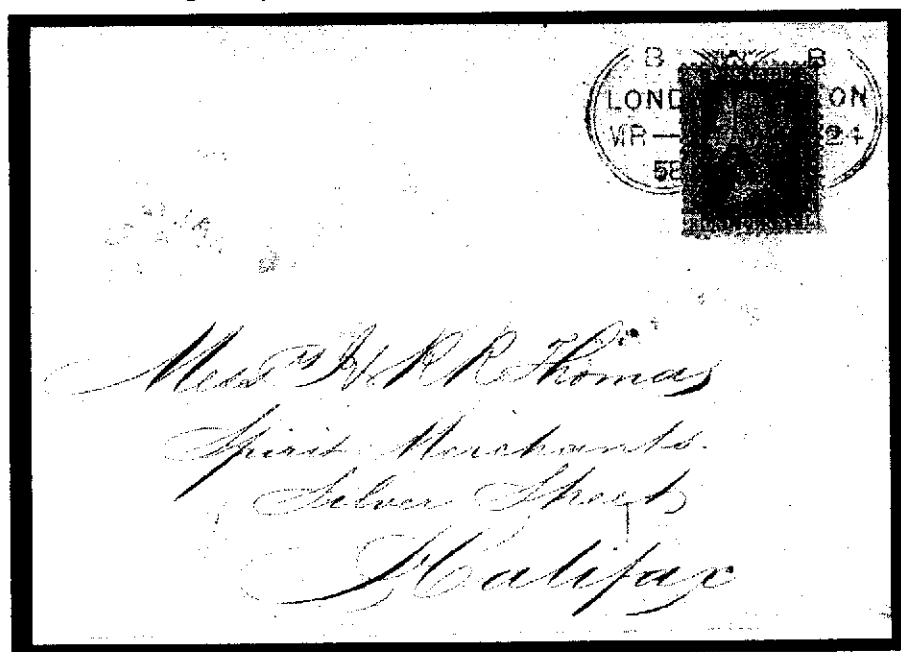 B W B
LOND ON
MR 24
58
Messrs W & R R Thomas
Spirit Merchants
Silver Street
Halifax